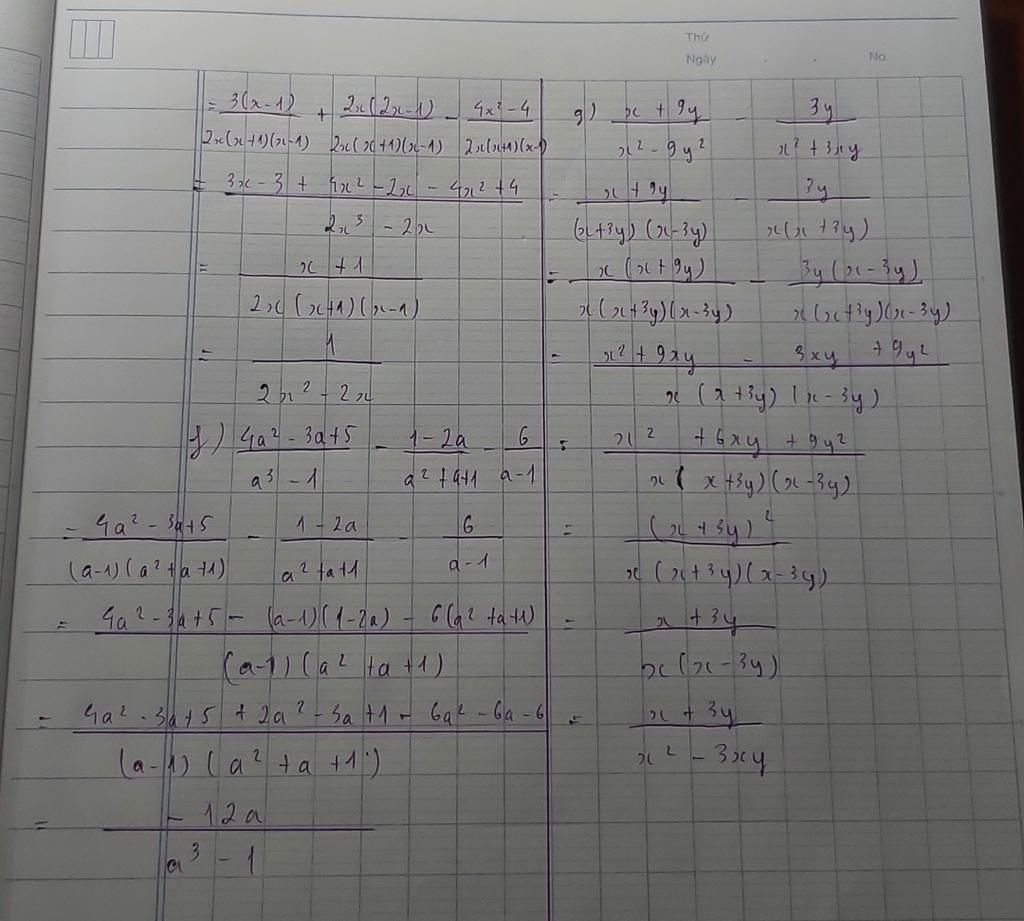 Thứ
Ngày . . No.
= 3(x-1)/2x(x+1)(x-1) + 2x(2x-1)/2x(x+1)(x-1) - 4x²-4/2x(x+1)(x-1)
= 3x-3 + 4x² - 2x - 4x² + 4/2x³ - 2x
= x + 1/2x(x+1)(x-1)
= 1/2x² - 2x
f) 4a² - 3a + 5/a³ - 1 - 1 - 2a/a² + a + 1 - 6/a-1
= 4a² - 3a + 5/(a-1)(a² + a + 1) - 1 - 2a/a² + a + 1 - 6/a-1
= 4a² - 3a + 5 - (a-1)(1-2a) - 6(a² + a + 1)/(a-1)(a² + a + 1)
= 4a² - 3a + 5 + 2a² - 3a + 1 - 6a² - 6a - 6/(a-1)(a² + a + 1)
= - 12a/a³ - 1
g) x + 9y/x² - 9y² - 3y/x² + 3xy
= x + 9y/(x+3y)(x-3y) - 3y/x(x + 3y)
= x(x+9y)/x(x+3y)(x-3y) - 3y(x-3y)/x(x+3y)(x-3y)
= x² + 9xy - 3xy + 9y²/x(x+3y)(x-3y)
= x² + 6xy + 9y²/x(x+3y)(x-3y)
= (x + 3y)²/x(x+3y)(x-3y)
= x + 3y/x(x-3y)
= x + 3y/x² - 3xy